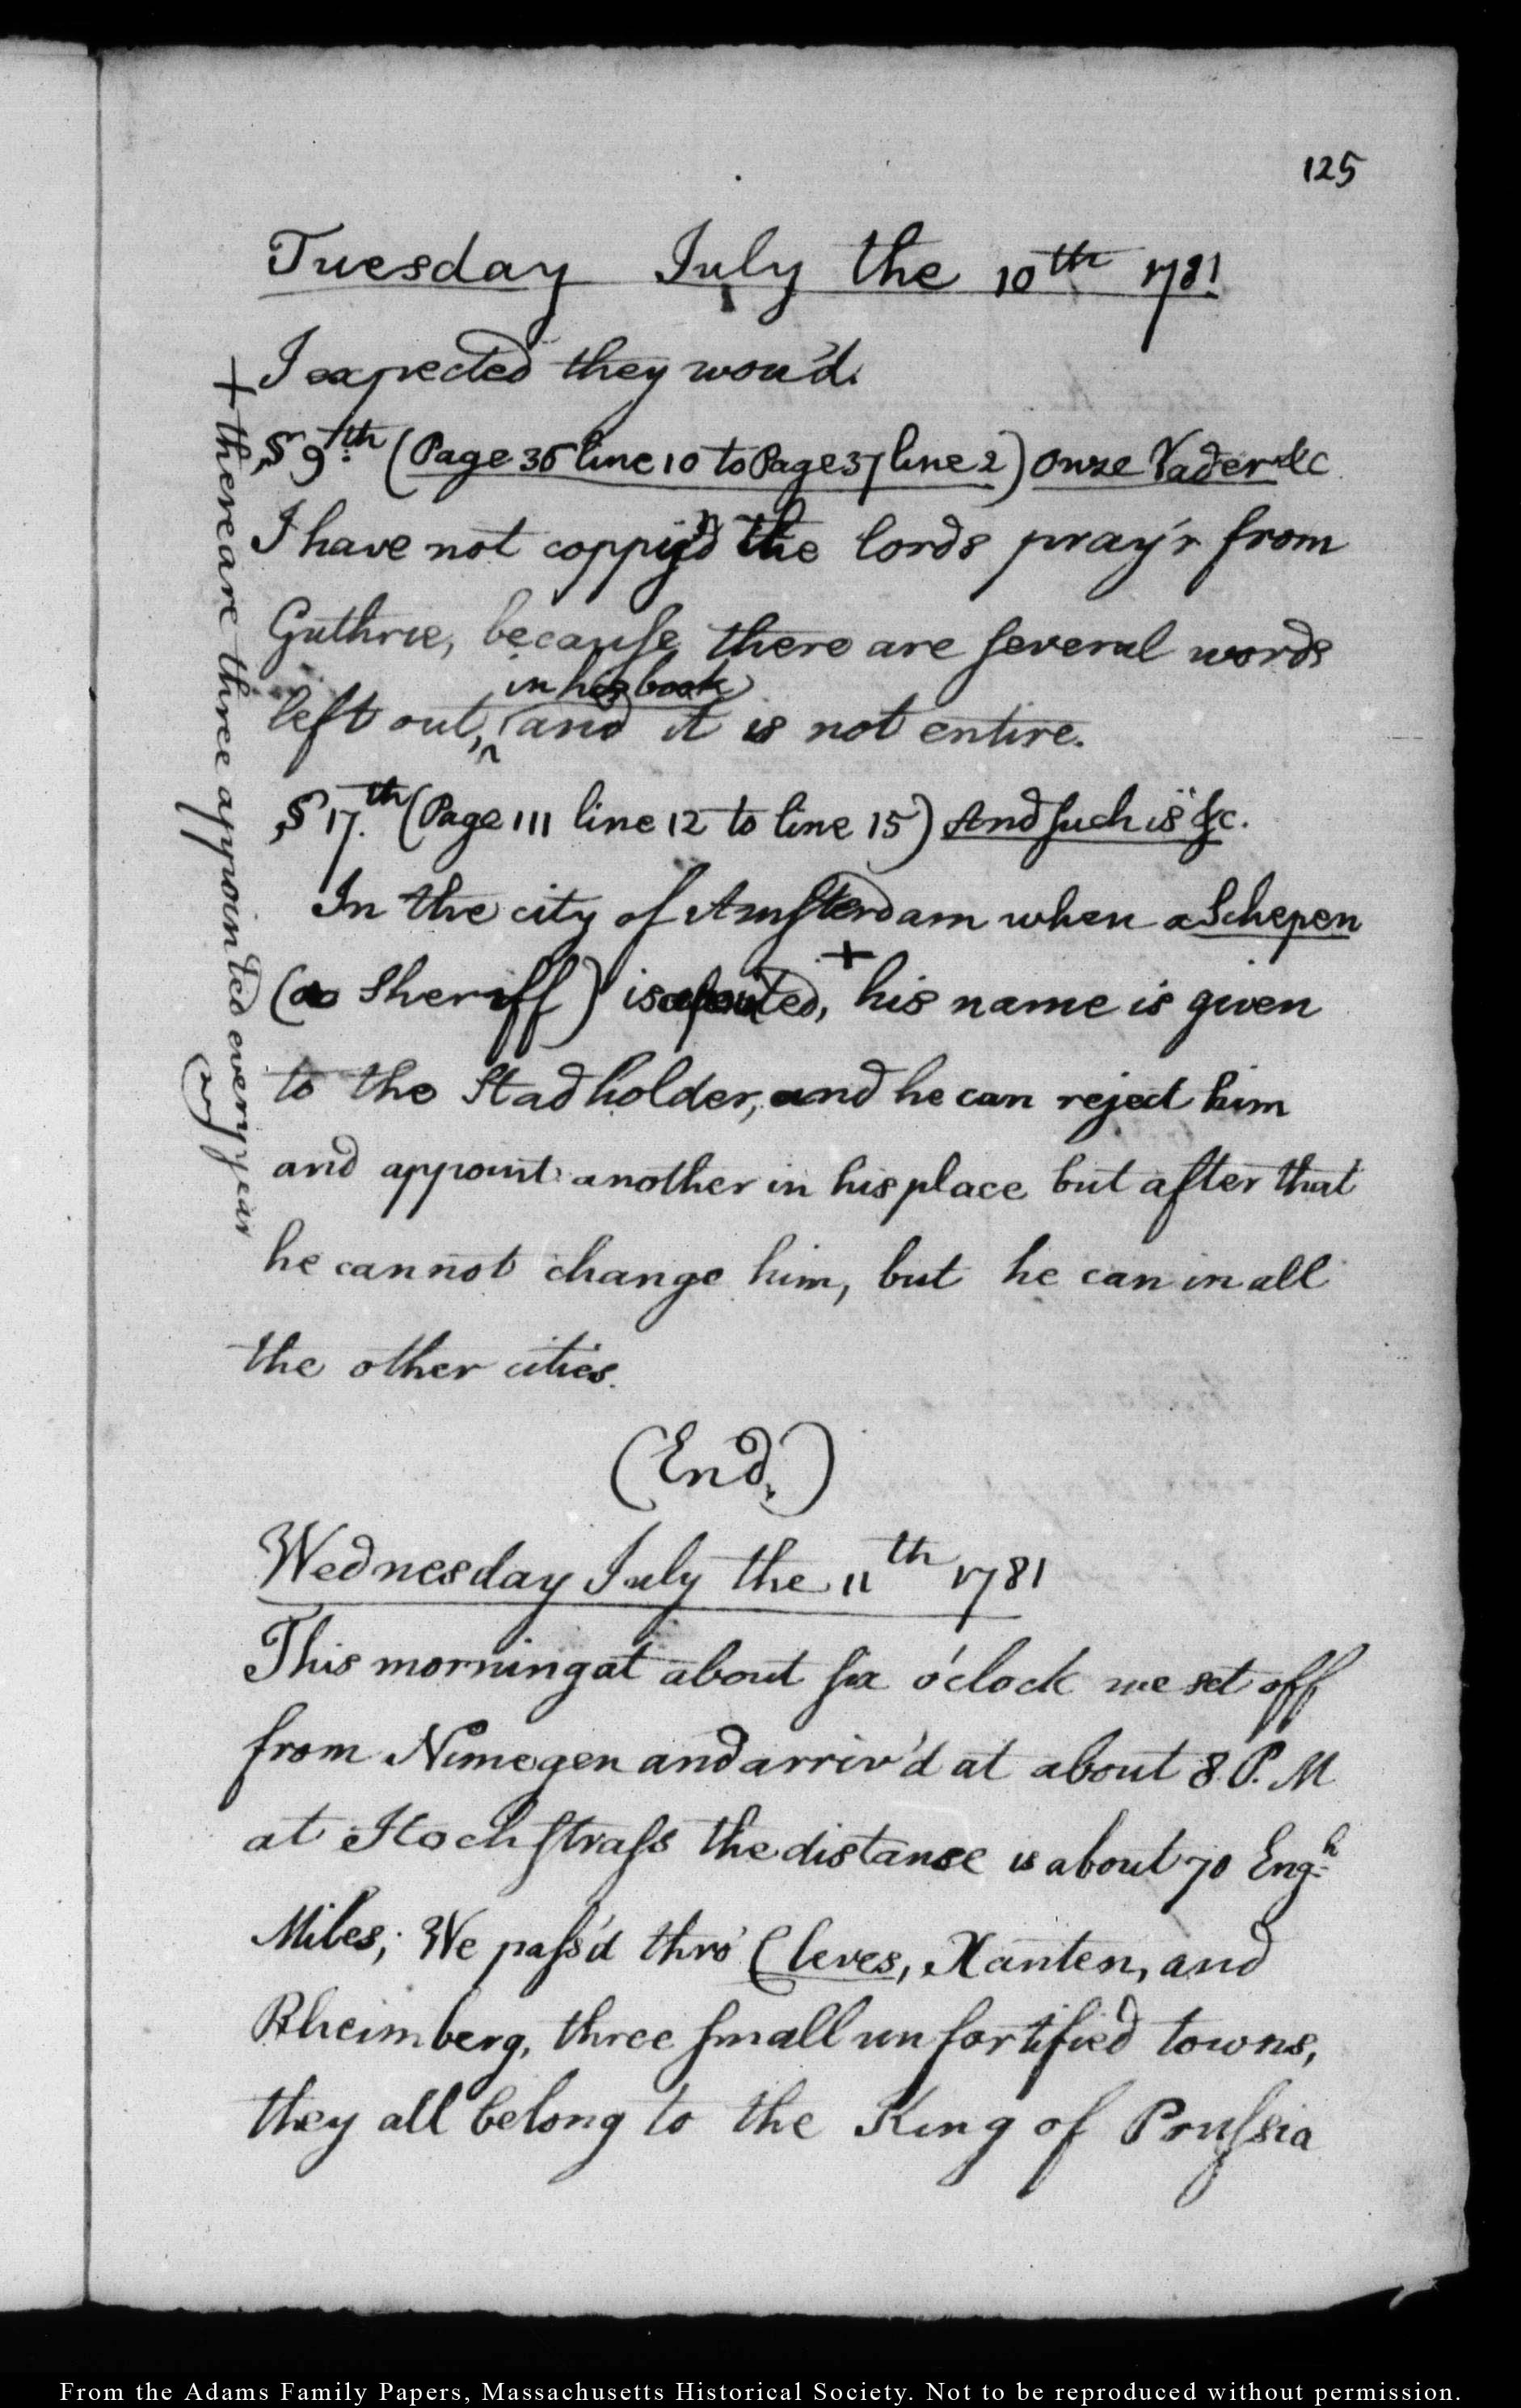 125
Tuesday July the 10th 1781
I expected they wou'd.
§ 9th. (Page 36 line 10 to Page 37 line 2) Onze Vader &c
I have not coppy'd the lords pray'r from
Guthrie, because there are several words
in his book
left out, and it is not entire.
§ 17.th (Page 111 line 12 to line 15) And such is &c.
In the city of Amsterdam when a Schepen
+
(a Sheriff) is apointed, his name is given
to the Stadholder, and he can reject him
and appoint another in his place but after that
he cannot change him, but he can in all
the other cities.
(End.)
+ there are three appointed every year
Wednesday July the 11th 1781
This morning at about six o'clock we set off
from Nimegen and arriv'd at about 8. P. M
at Hochstrass the distance is about 70 Engh
Miles; We pass'd thro' Cleves, Xanten, and
Rheimberg, three small unfortified towns,
they all belong to the King of Prussia
From the Adams Family Papers, Massachusetts Historical Society. Not to be reproduced without permission.